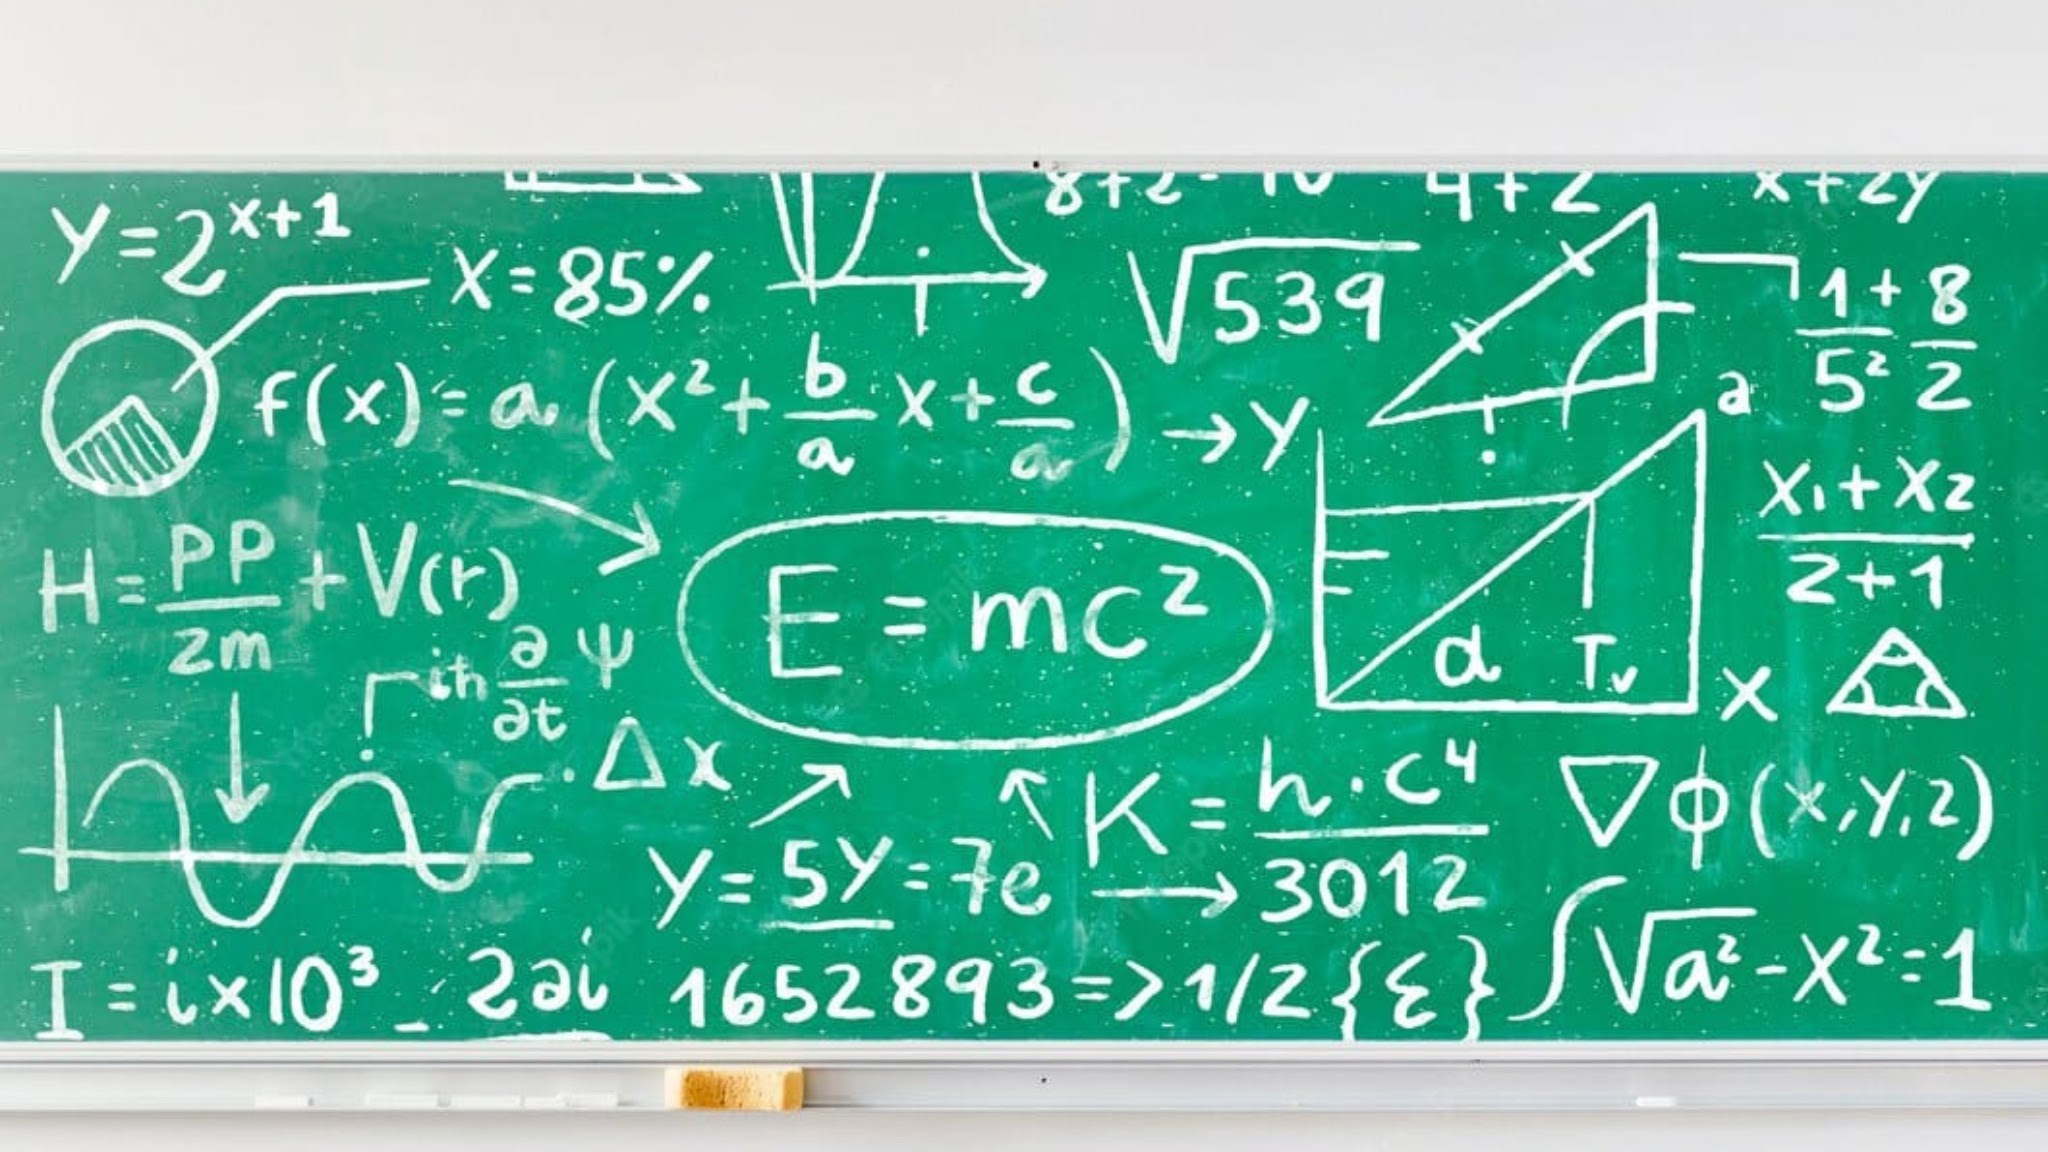 8+2=10
4+2
x+2y
Y=2^{x+1}
X=85%
√539
1+8
5² 2
f(x)=a(x²+\frac{b}{a}x+\frac{c}{a})→Y
a
\frac{x₁+x₂}{2+1}
H=\frac{PP}{2m}+V(r)
E=mc²
iħ\frac{∂}{∂t}ψ
d Tv
X
Δx
K=\frac{h·c⁴}{3012}
▽ϕ(x,y,z)
Y=5Y=7e
→
I=i×10³_2∂i
1652893=>1/2{Σ}
∫√a²-X²=1